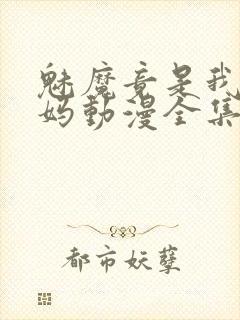 魅魔竟是我
妈動漫全集
都市妖孽